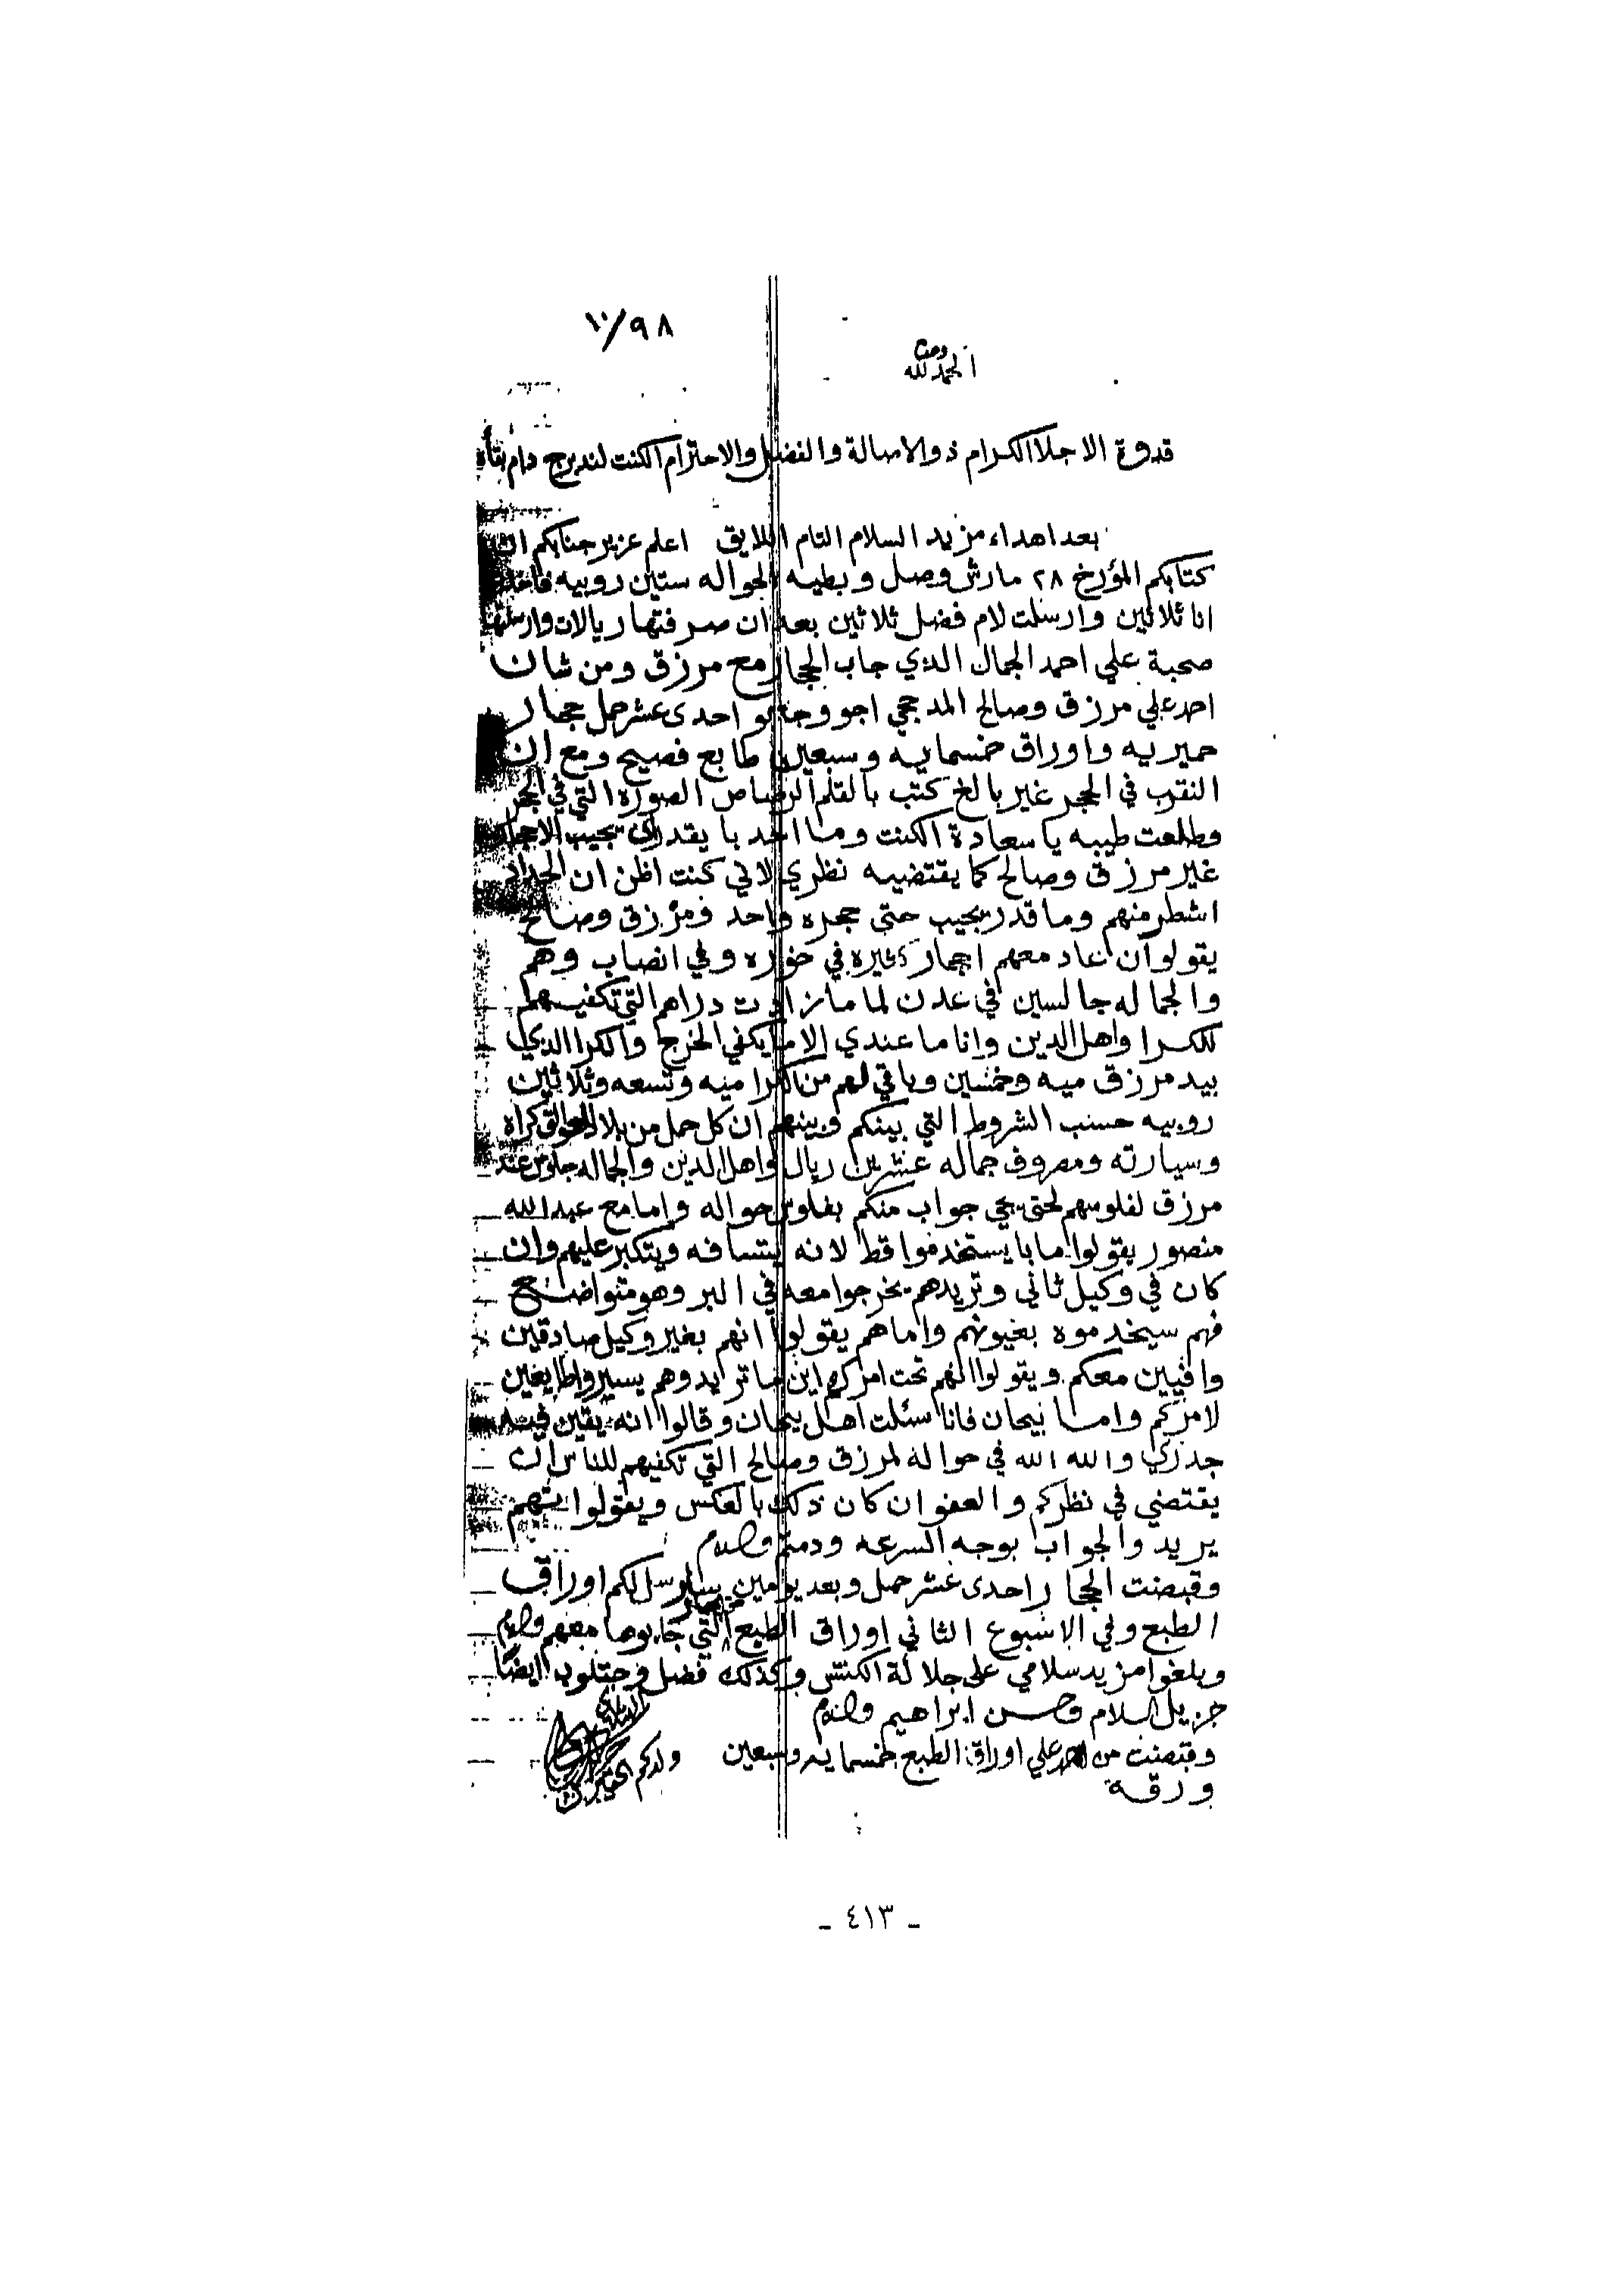 ١٠/٩٨
الحمد لله وحده
قدوة الاجلا الكرام ذو الاصالة والفضل والاحترام الكنت لندبرج دام بقاه
بعد اهداء مزيد السلام التام اللايق اعلم عزيز جنابكم ان
كتابكم المؤرخ ٢٨ مارش وصل وبطيه الحواله ستين روبيه فاخذت
انا ثلاثين وارسلت لام فضل ثلاثين بعد ان صرفتها ريالات وارسلتها
صحبة علي احمد الجمال الذي جاب الحجار مع مرزق ومن شان
احمد علي مرزق وصالح المدحجي اجو وجابو احدى عشر حمل حجار
حميريه واوراق خمسمايه وسبعين طابع فصيح ومع ان
النقرب في الحجر غير بالغ كتب بالقلم الرصاص الصوره التي في الحجر
وطلعت طيبه يا سعادة الكنت وما احد با يقدر يجيب الاحجار
غير مرزق وصالح كما يقتضيه نظري لاني كنت اظن ان الحداد
اشطر منهم وما قدر يجيب حتى حجره واحد ومرزق وصالح
يقولو ان عاد معهم احجار كثيره في خوره وفي انصاب وهم
والجماله جالسين في عدن لما مازادت دراهم التي تكفيهم
للكرا واهل الدين وانا ما عندي الا ما يكفي الخرج والكرا الذي
بيد مرزق ميه وخمسين وباقي لهم من الكرا ميه وتسعه وثلاثين
روبيه حسب الشروط التي بينكم وبينهم ان كل حمل من بلاد العوالق كراه
وسيارته ومعروف جماله عشرين ريال واهل الدين والجماله جلوس عند
مرزق لفلوسهم لحتى يجي جواب منكم بفلوس حواله واما مع عبد الله
منصور يقولوا ما با يستخدموا قط لانه يتسافه ويتكبر عليهم وان
كان في وكيل ثاني وتريدهم يخرجوا معه في البر وهو متواضع
فهم سيخدموه بعيونهم واما هم يقولوا انهم بغير وكيل صادقين
وافيين معكم ويقولوا انهم تحت امركم اين ما تريدوهم يسيروا طايعين
لامركم واما بيحان فانا سئلت اهل بيحان وقالوا انه يقين فيه
جدري والله الله في حواله لمرزق وصالح التي تكفيهم للناس ان
يقتضي في نظركم والعفو ان كان ذلك بالعكس ويقولوا
يريد والجواب بوجه السرعه ودمتم والسلام
وقبضت الحجار احدى عشر حمل وبعد يومين سارسل لكم اوراق
الطبع وفي الاسبوع الثاني اوراق الطبع التي جابوها معهم والسلام
وبلغوا مزيد سلامي على جلالة الكنتس وكذلك فضل وحتلوب ايضًا
جزيل السلام وحسن ابراهيم والسلام
وقبضت من احمد علي اوراق الطبع خمسمايه وسبعين ولدكم
ورقه
- ٤١٣ -